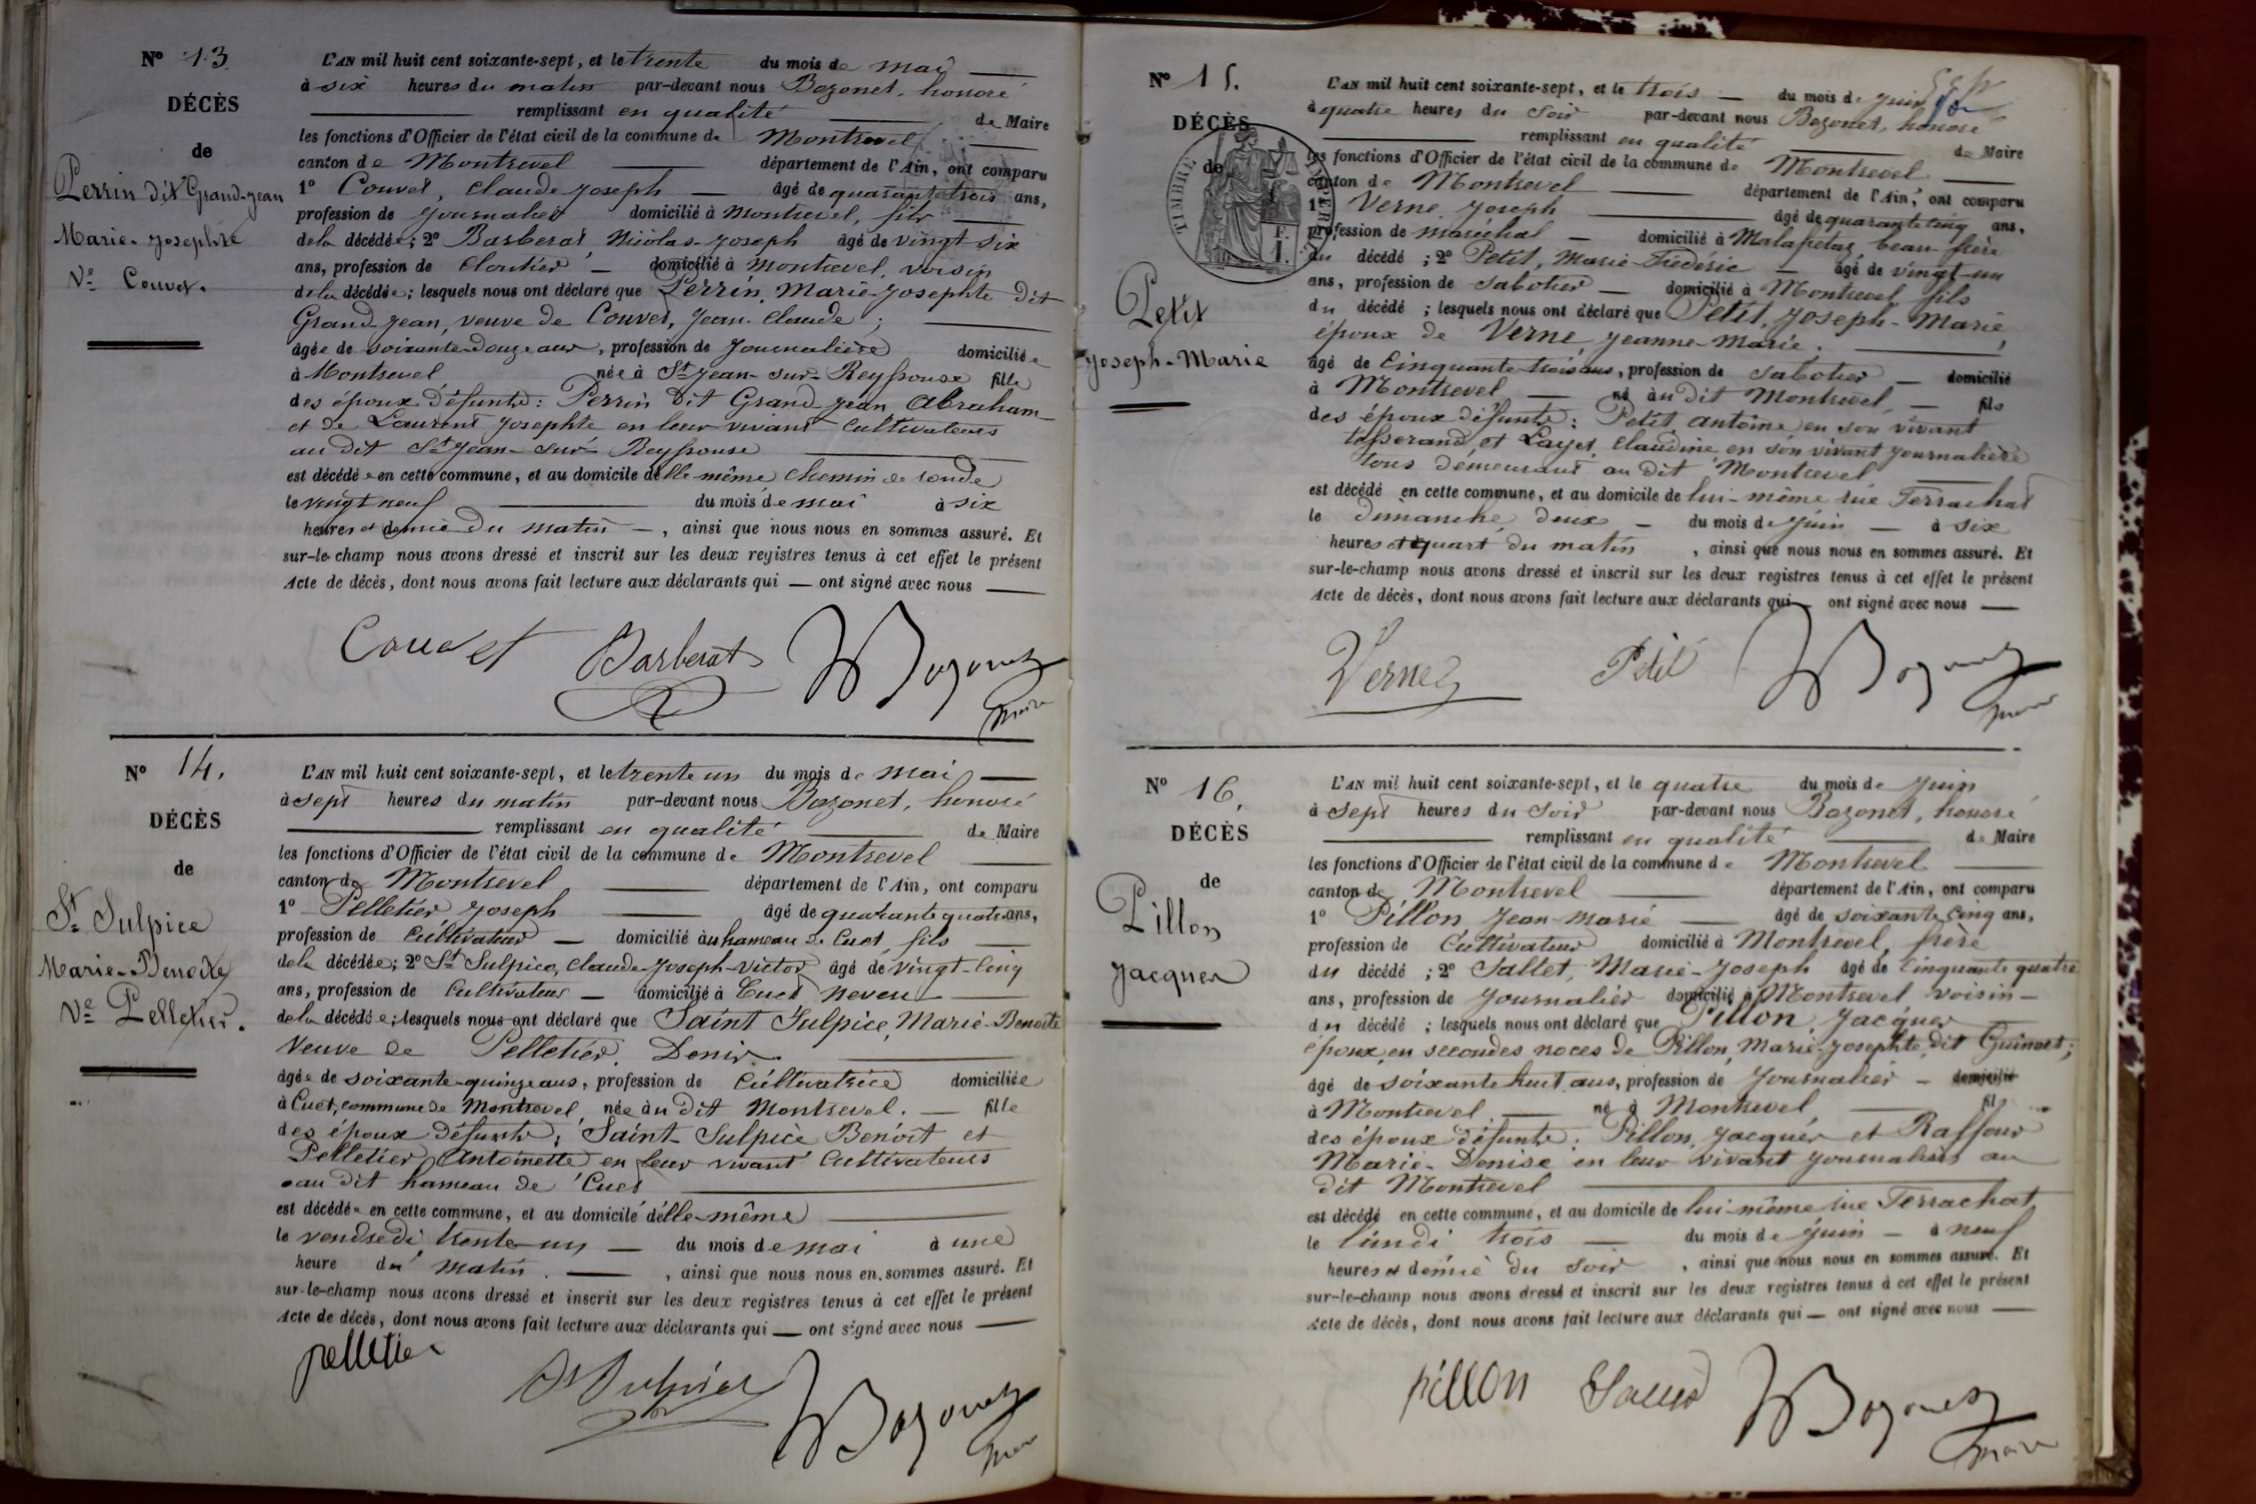 Nº 13.
DÉCÈS
de
Perrin dit Grand-jean
Marie-Josephte
Vᵉ Couvet.
L'AN mil huit cent soixante-sept, et le trente du mois de mai
à six heures du matin par-devant nous Bozonet, honoré
remplissant en qualité de Maire
les fonctions d'Officier de l'état civil de la commune de Montrevel
canton de Montrevel département de l'Ain, ont comparu
1º Couvet, Claude Joseph âgé de quarante trois ans,
profession de journalier domicilié à Montrevel, fils
de la décédée; 2º Barberat Nicolas-Joseph âgé de vingt six
ans, profession de cloutier domicilié à Montrevel, voisin
de la décédée; lesquels nous ont déclaré que Perrin, Marie-Josephte dit
Grand-jean, veuve de Couvet, Jean-Claude;
âgée de soixante-douze ans, profession de journalière domiciliée
à Montrevel née à St Jean-sur-Reyssouse fille
des époux défunts: Perrin dit Grand jean Abraham
et de Laurent Josephte en leur vivant cultivateurs
au dit St Jean-sur-Reyssouse
est décédée en cette commune, et au domicile d'elle même chemin de ronde
le vingt neuf du mois de mai à six
heures et demie du matin, ainsi que nous nous en sommes assuré. Et
sur-le-champ nous avons dressé et inscrit sur les deux registres tenus à cet effet le présent
Acte de décès, dont nous avons fait lecture aux déclarants qui ont signé avec nous
Couvet Barberat Bozonet
Maire
Nº 14.
DÉCÈS
de
St Sulpice
Marie-Benoite
Vᵉ Pelletier.
L'AN mil huit cent soixante-sept, et le trente un du mois de mai
à sept heures du matin par-devant nous Bozonet, honoré
remplissant en qualité de Maire
les fonctions d'Officier de l'état civil de la commune de Montrevel
canton de Montrevel département de l'Ain, ont comparu
1º Pelletier Joseph âgé de quarante quatre ans,
profession de cultivateur domicilié au hameau de Cuet, fils
de la décédée; 2º St Sulpice, Claude-Joseph-Victor âgé de vingt-cinq
ans, profession de cultivateur domicilié à Cuet neveu
de la décédée; lesquels nous ont déclaré que Saint Sulpice, Marie-Benoite
Veuve de Pelletier Denis.
âgée de soixante-quinze ans, profession de cultivatrice domiciliée
à Cuet, commune de Montrevel née au dit Montrevel. fille
des époux défunts; Saint-Sulpice Benoit et
Pelletier Antoinette en leur vivant cultivateurs
au dit hameau de Cuet
est décédée en cette commune, et au domicile d'elle-même
le vendredi trente-un du mois de mai à une
heure du matin, ainsi que nous nous en sommes assuré. Et
sur-le-champ nous avons dressé et inscrit sur les deux registres tenus à cet effet le présent
Acte de décès, dont nous avons fait lecture aux déclarants qui ont signé avec nous
pelletier
St Sulpice Bozonet
Maire
Nº 15.
DÉCÈS
de
TIMBRE IMPÉRIAL
F.
1.
Petit
Joseph-Marie
L'AN mil huit cent soixante-sept, et le trois du mois de juin
à quatre heures du soir par-devant nous Bozonet, honoré
remplissant en qualité de Maire
les fonctions d'Officier de l'état civil de la commune de Montrevel
canton de Montrevel département de l'Ain, ont comparu
1º Verne Joseph âgé de quarante cinq ans,
profession de maréchal domicilié à Malafretaz beau-frère
du décédé; 2º Petit, Marie-Frédéric âgé de vingt-un
ans, profession de sabotier domicilié à Montrevel fils
du décédé; lesquels nous ont déclaré que Petit, Joseph-Marie,
époux de Verne Jeanne-Marie.
âgé de cinquante-trois ans, profession de sabotier domicilié
à Montrevel né au dit Montrevel fils
des époux défunts: Petit antoine en son vivant
tisserand, et Layet, Claudine en son vivant journalière
tous demeurant au dit Montrevel
est décédé en cette commune, et au domicile de lui-même rue Terrachat
le dimanche deux du mois de juin à six
heures et quart du matin, ainsi que nous nous en sommes assuré. Et
sur-le-champ nous avons dressé et inscrit sur les deux registres tenus à cet effet le présent
Acte de décès, dont nous avons fait lecture aux déclarants qui ont signé avec nous
Verne Petit Bozonet
Maire
Nº 16.
DÉCÈS
de
Pillon
Jacques
L'AN mil huit cent soixante-sept, et le quatre du mois de juin
à sept heures du soir par-devant nous Bozonet, honoré
remplissant en qualité de Maire
les fonctions d'Officier de l'état civil de la commune de Montrevel
canton de Montrevel département de l'Ain, ont comparu
1º Pillon Jean-Marie âgé de soixante cinq ans,
profession de cultivateur domicilié à Montrevel, frère
du décédé; 2º Sallet, Marie-Joseph âgé de cinquante quatre
ans, profession de journalier domicilié à Montrevel voisin
du décédé; lesquels nous ont déclaré que Pillon, Jacques
époux en secondes noces de Pillon, Marie-Josephte dit Guinoet;
âgé de soixante huit ans, profession de journalier domicilié
à Montrevel né à Montrevel, fil
des époux défunts: Pillon, Jacques et Raffour
Marie-Denise en leur vivant journaliers au
dit Montrevel
est décédé en cette commune, et au domicile de lui-même rue Terrachat
le lundi trois du mois de juin à neuf
heures et demie du soir, ainsi que nous nous en sommes assuré. Et
sur-le-champ nous avons dressé et inscrit sur les deux registres tenus à cet effet le présent
Acte de décès, dont nous avons fait lecture aux déclarants qui ont signé avec nous
pillon Bozonet
Maire